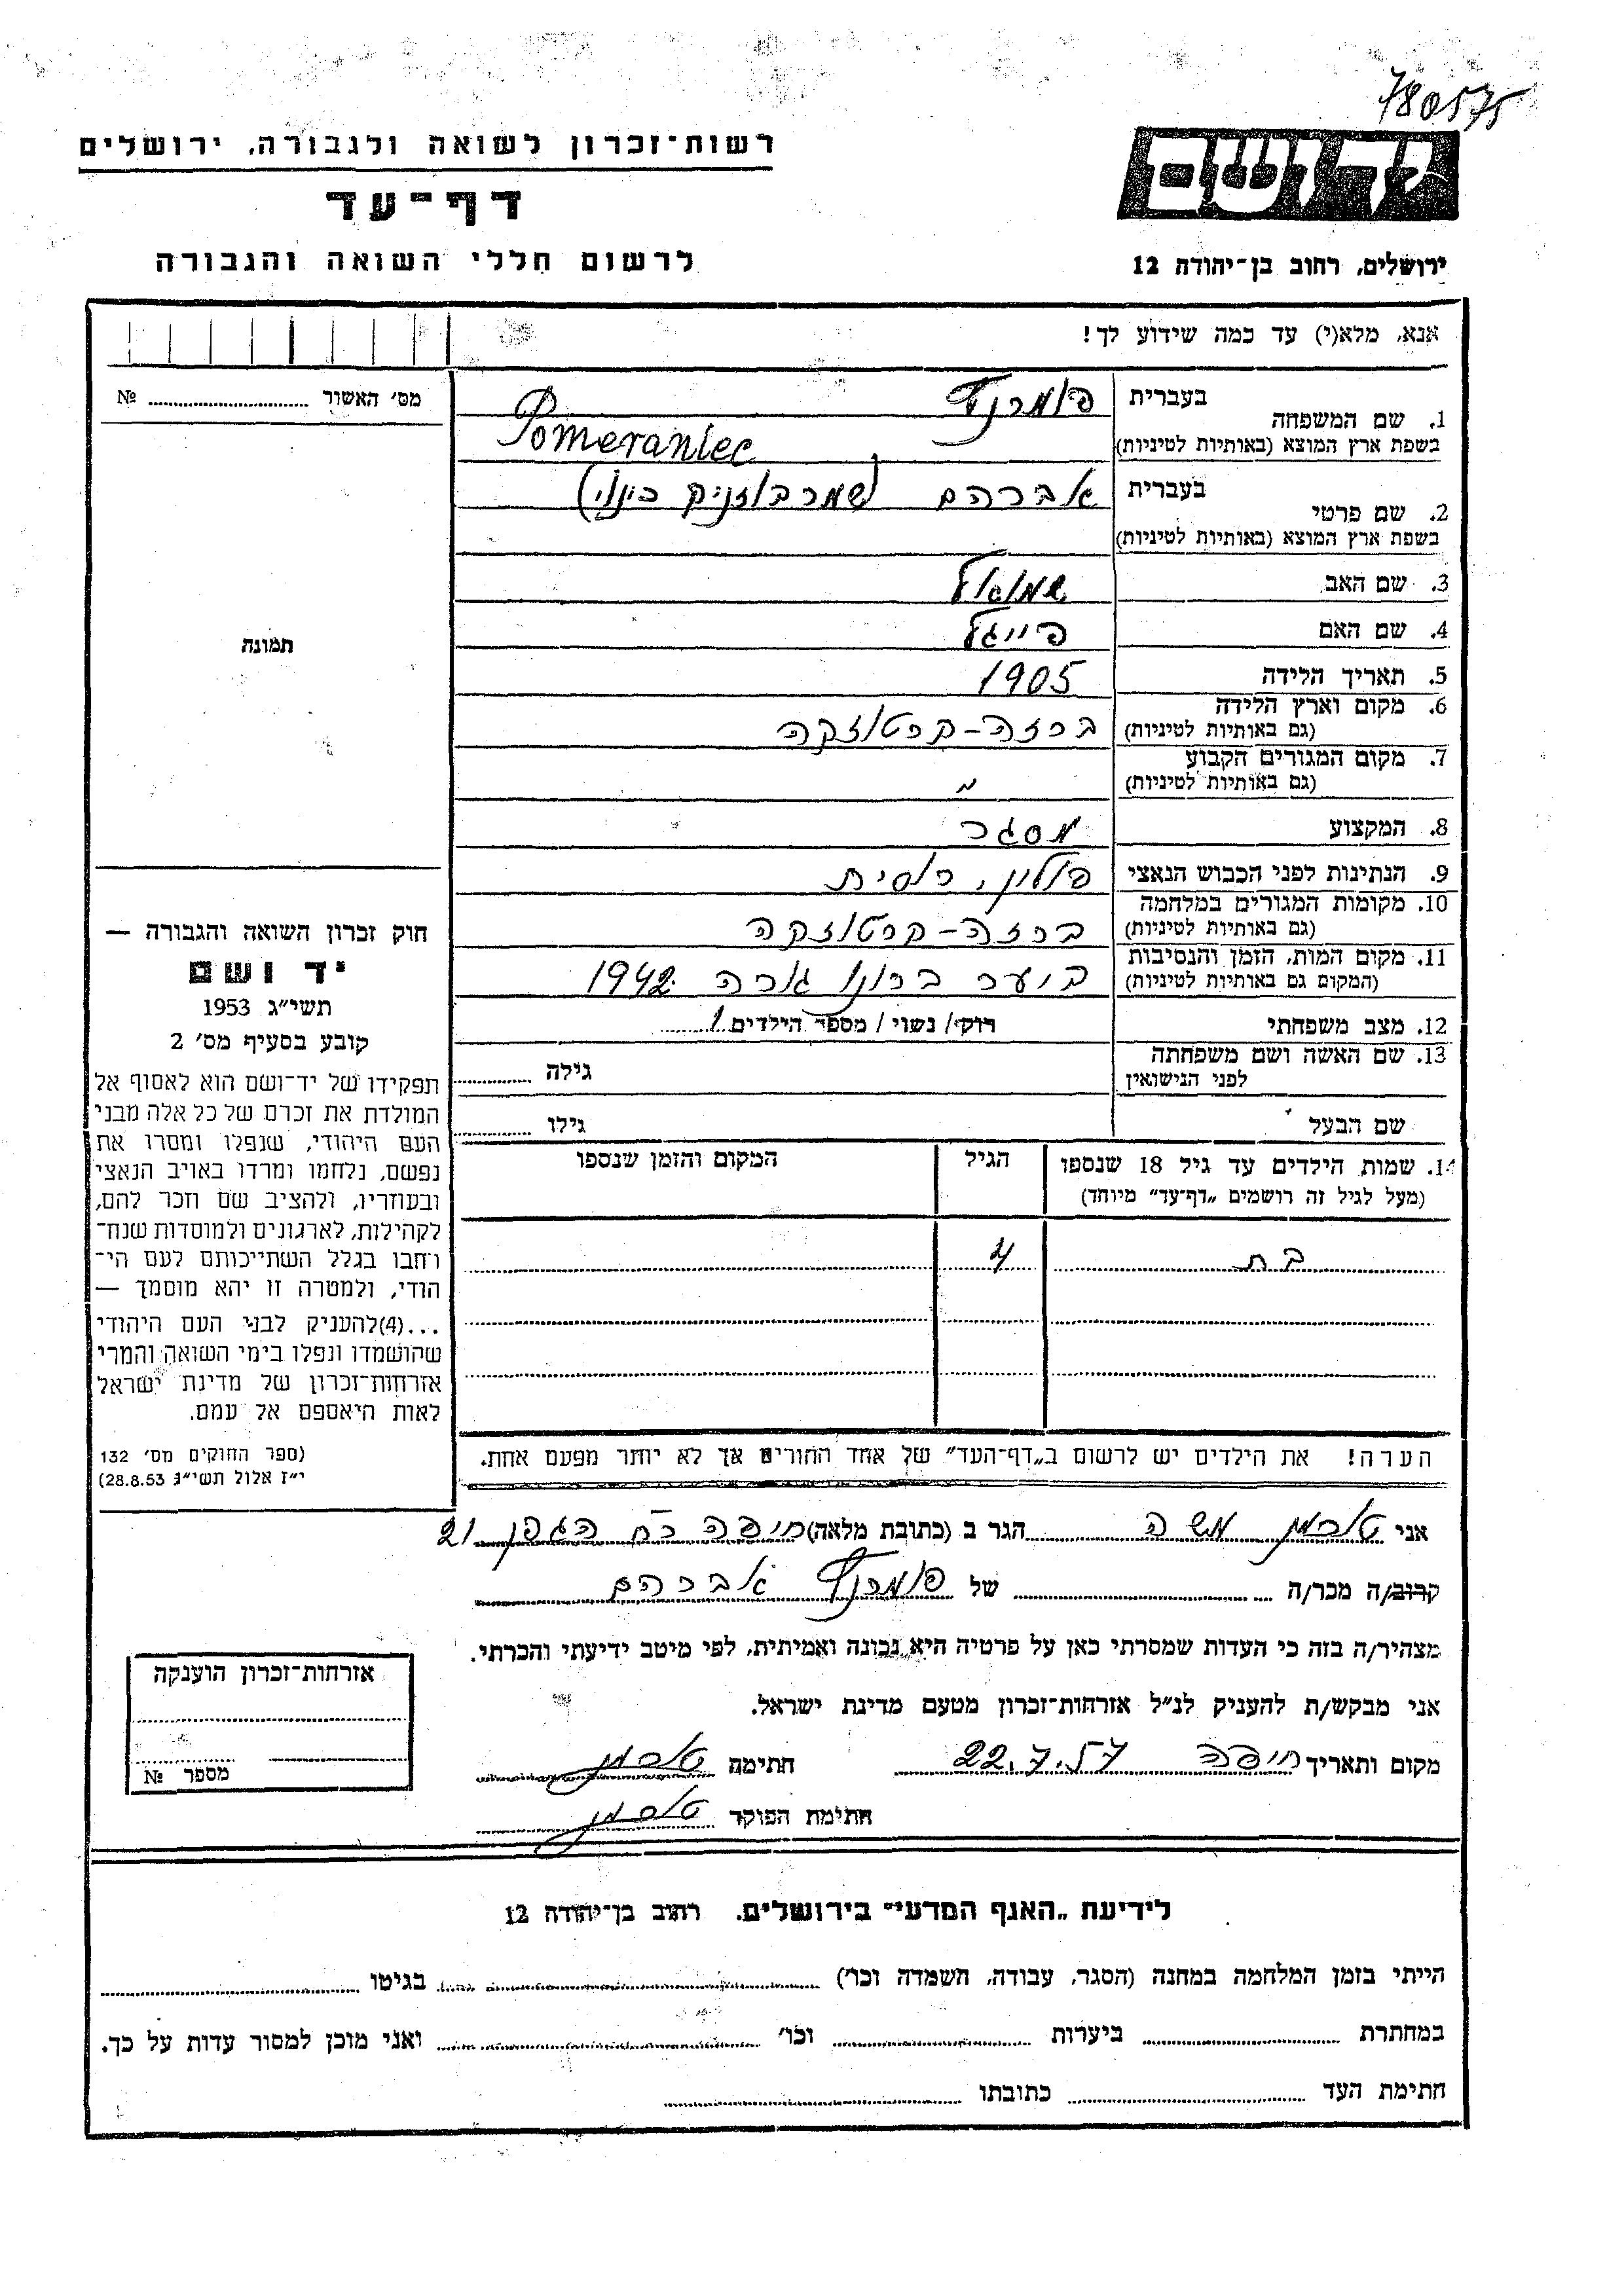 780575
ידושם
רשות־זכרון לשואה ולגבורה, ירושלים
דף־עד
לרשום חללי השואה והגבורה
ירושלים, רחוב בן־יהודה 12
אנא, מלא(י) עד כמה שידוע לך!
מס׳ האשור № ........
1. שם המשפחה
בעברית פומרנץ
בשפת ארץ המוצא (באותיות לטיניות) Pomeraniec
2. שם פרטי
בעברית אברהם
בשפת ארץ המוצא (באותיות לטיניות)
3. שם האב שמואל
4. שם האם פייגל
5. תאריך הלידה 1905
6. מקום וארץ הלידה ברזה-קרטוזקה
(גם באותיות לטיניות)
7. מקום המגורים הקבוע "
(גם באותיות לטיניות)
8. המקצוע מסגר
9. הנתינות לפני הכבוש הנאצי פולין, רוסית
10. מקומות המגורים במלחמה ברזה-קרטוזקה
(גם באותיות לטיניות)
11. מקום המות, הזמן והנסיבות ביער ברונו גורה 1942
(המקום גם באותיות לטיניות)
12. מצב משפחתי רוק/ נשוי / מספר הילדים 1
13. שם האשה ושם משפחתה גילה ........
לפני הנישואין
שם הבעל גילו ........
14. שמות הילדים עד גיל 18 שנספו הגיל המקום והזמן שנספו
(מעל לגיל זה רושמים „דף־עד” מיוחד)
בת 4
הערה! את הילדים יש לרשום ב„דף־העד” של אחד ההורים אך לא יותר מפעם אחת.
תמונה
חוק זכרון השואה והגבורה —
יד ושם
תשי״ג 1953
קובע בסעיף מס׳ 2
תפקידו של יד־ושם הוא לאסוף אל
המולדת את זכרם של כל אלה מבני
העם היהודי, שנפלו ומסרו את
נפשם, נלחמו ומרדו באויב הנאצי
ובעוזריו, ולהציב שם וזכר להם,
לקהילות, לארגונים ולמוסדות שנח־
רחבו בגלל השתייכותם לעם הי־
הודי, ולמטרה זו יהא מוסמך —
...(4)להעניק לבני העם היהודי
שהושמדו ונפלו בימי השואה והמרי
אזרחות־זכרון של מדינת ישראל
לאות היאספם אל עמם.
(ספר החוקים מס׳ 132
י״ז אלול תשי״ג 28.8.53)
אני טוכמן משה הגר ב (כתובת מלאה) חיפה רח הגפן 21
קרוב/ה מכר/ה ........ של פומרנץ אברהם
מצהיר/ה בזה כי העדות שמסרתי כאן על פרטיה היא נכונה ואמיתית, לפי מיטב ידיעתי והכרתי.
אני מבקש/ת להעניק לנ״ל אזרחות־זכרון מטעם מדינת ישראל.
מקום ותאריך חיפה 22.7.57 חתימה טוכמן
חתימת הפוקד טוכמן
אזרחות־זכרון הוענקה
מספר №
לידיעת „האגף המדעי” בירושלים. רחוב בן־יהודה 12
הייתי בזמן המלחמה במחנה (הסגר, עבודה, השמדה וכו׳) ........ בגיטו ........
במחתרת ........ ביערות ........ וכו׳ ........ ואני מוכן למסור עדות על כך.
חתימת העד ........ כתובתו ........